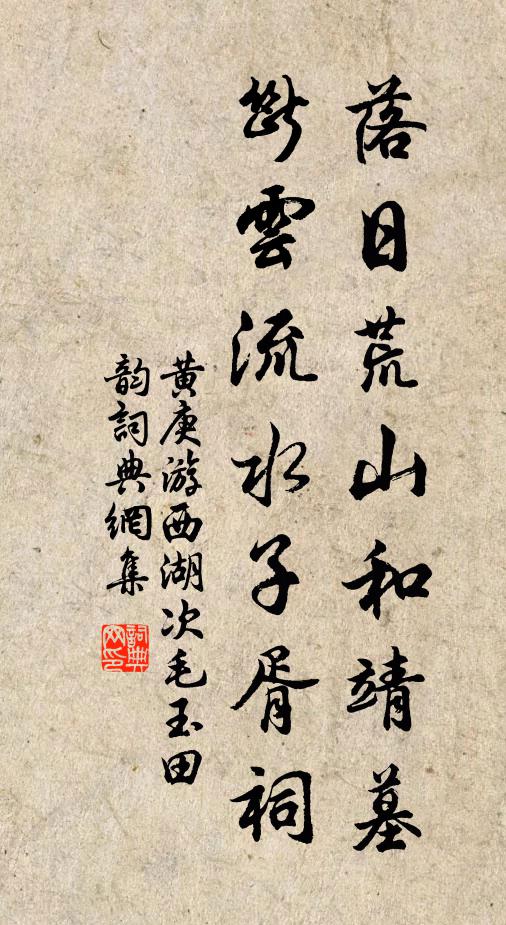 落日荒山和靖墓
断雲流水子胥祠
黄庚游西湖次毛玉田
韵詞典網集
詞典網印